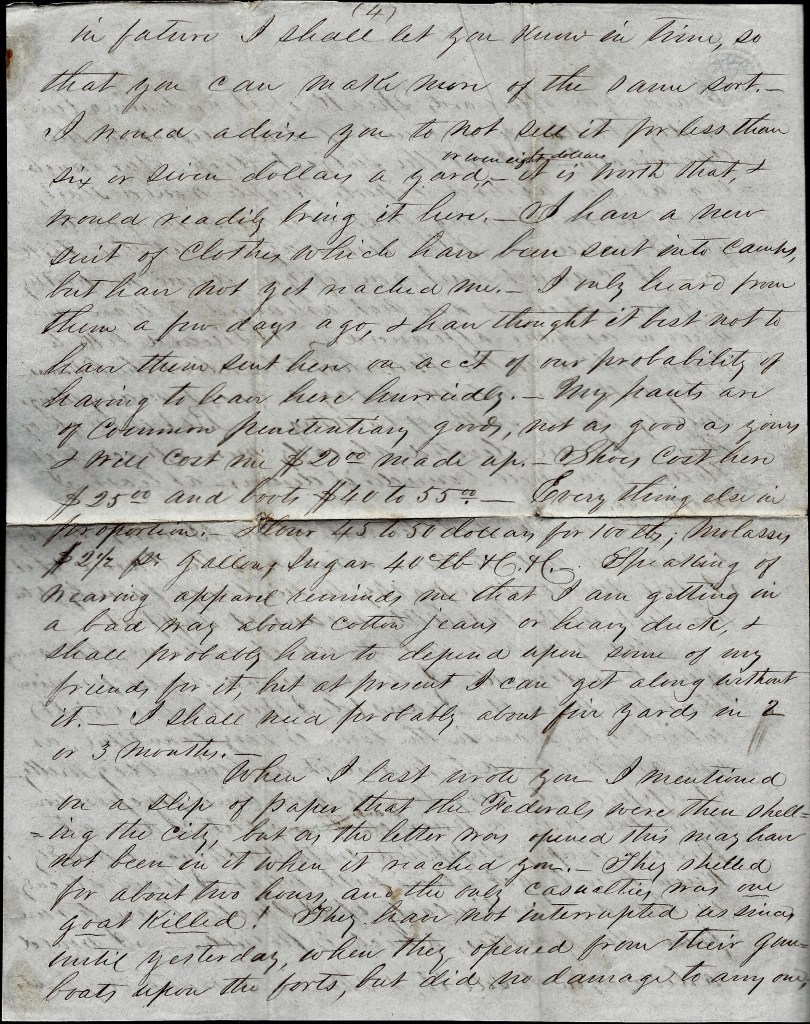 (4)
in future I shall let you know in time, so
that you can make more of the same sort.—
I would advise you to not sell it for less than
or even eight dollars
six or seven dollars a yard,^— it is worth that, &
would readily bring it here.— I have a new
suit of clothes which have been sent into camp,
but have not yet reached me.— I only heard from
them a few days ago, & have thought it best not to
have them sent here on acct of our probability of
having to leave here hurriedly.— My pants are
of common penitentiary goods, not as good as yours
& will cost me $20.00 made up.— Shoes cost here
$25.00 and boots $40 to 55.00— Every thing else in
proportion.— Flour 45 to 50 dollars for 100 lbs; Molasses
$2 1/2 pr gallon, sugar 40c lb &C. &C.— Speaking of
wearing apparel reminds me that I am getting in
a bad way about cotton jeans or heavy duck, &
shall probably have to depend upon some of my
friends for it, but at present I can get along without
it.— I shall need probably about five yards in 2
or 3 months.—
When I last wrote you I mentioned
on a slip of paper that the Federals were then shell-
=ing the city, but as the letter was opened this may have
not been in it when it reached you.— They shelled
for about two hours, and the only casualties was one
goat killed! They have not interrupted us since
until yesterday, when they opened from their gun-
boats upon the forts, but did no damage to any one,